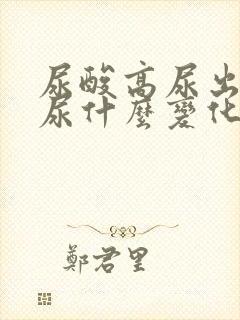 尿酸高尿出
尿什麼變化
鄭君里